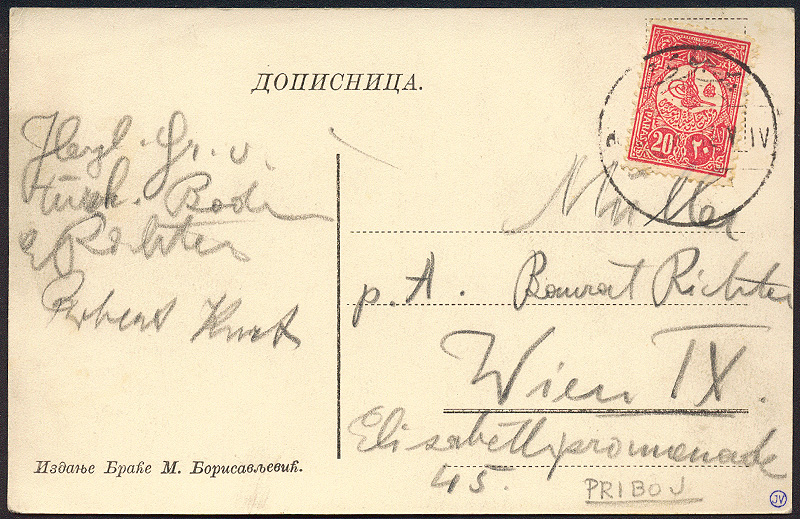 ДОПИСНИЦА.
20 ٢٠
IV
Herzl. Gr. v.
türk. Boden
Richter
Robert Kurt
Müller
p. A. Baurat Richter
Wien IX.
Elisabethpromenade
45.
PRIBOJ
Издање Браће М. Борисављевић.
JV